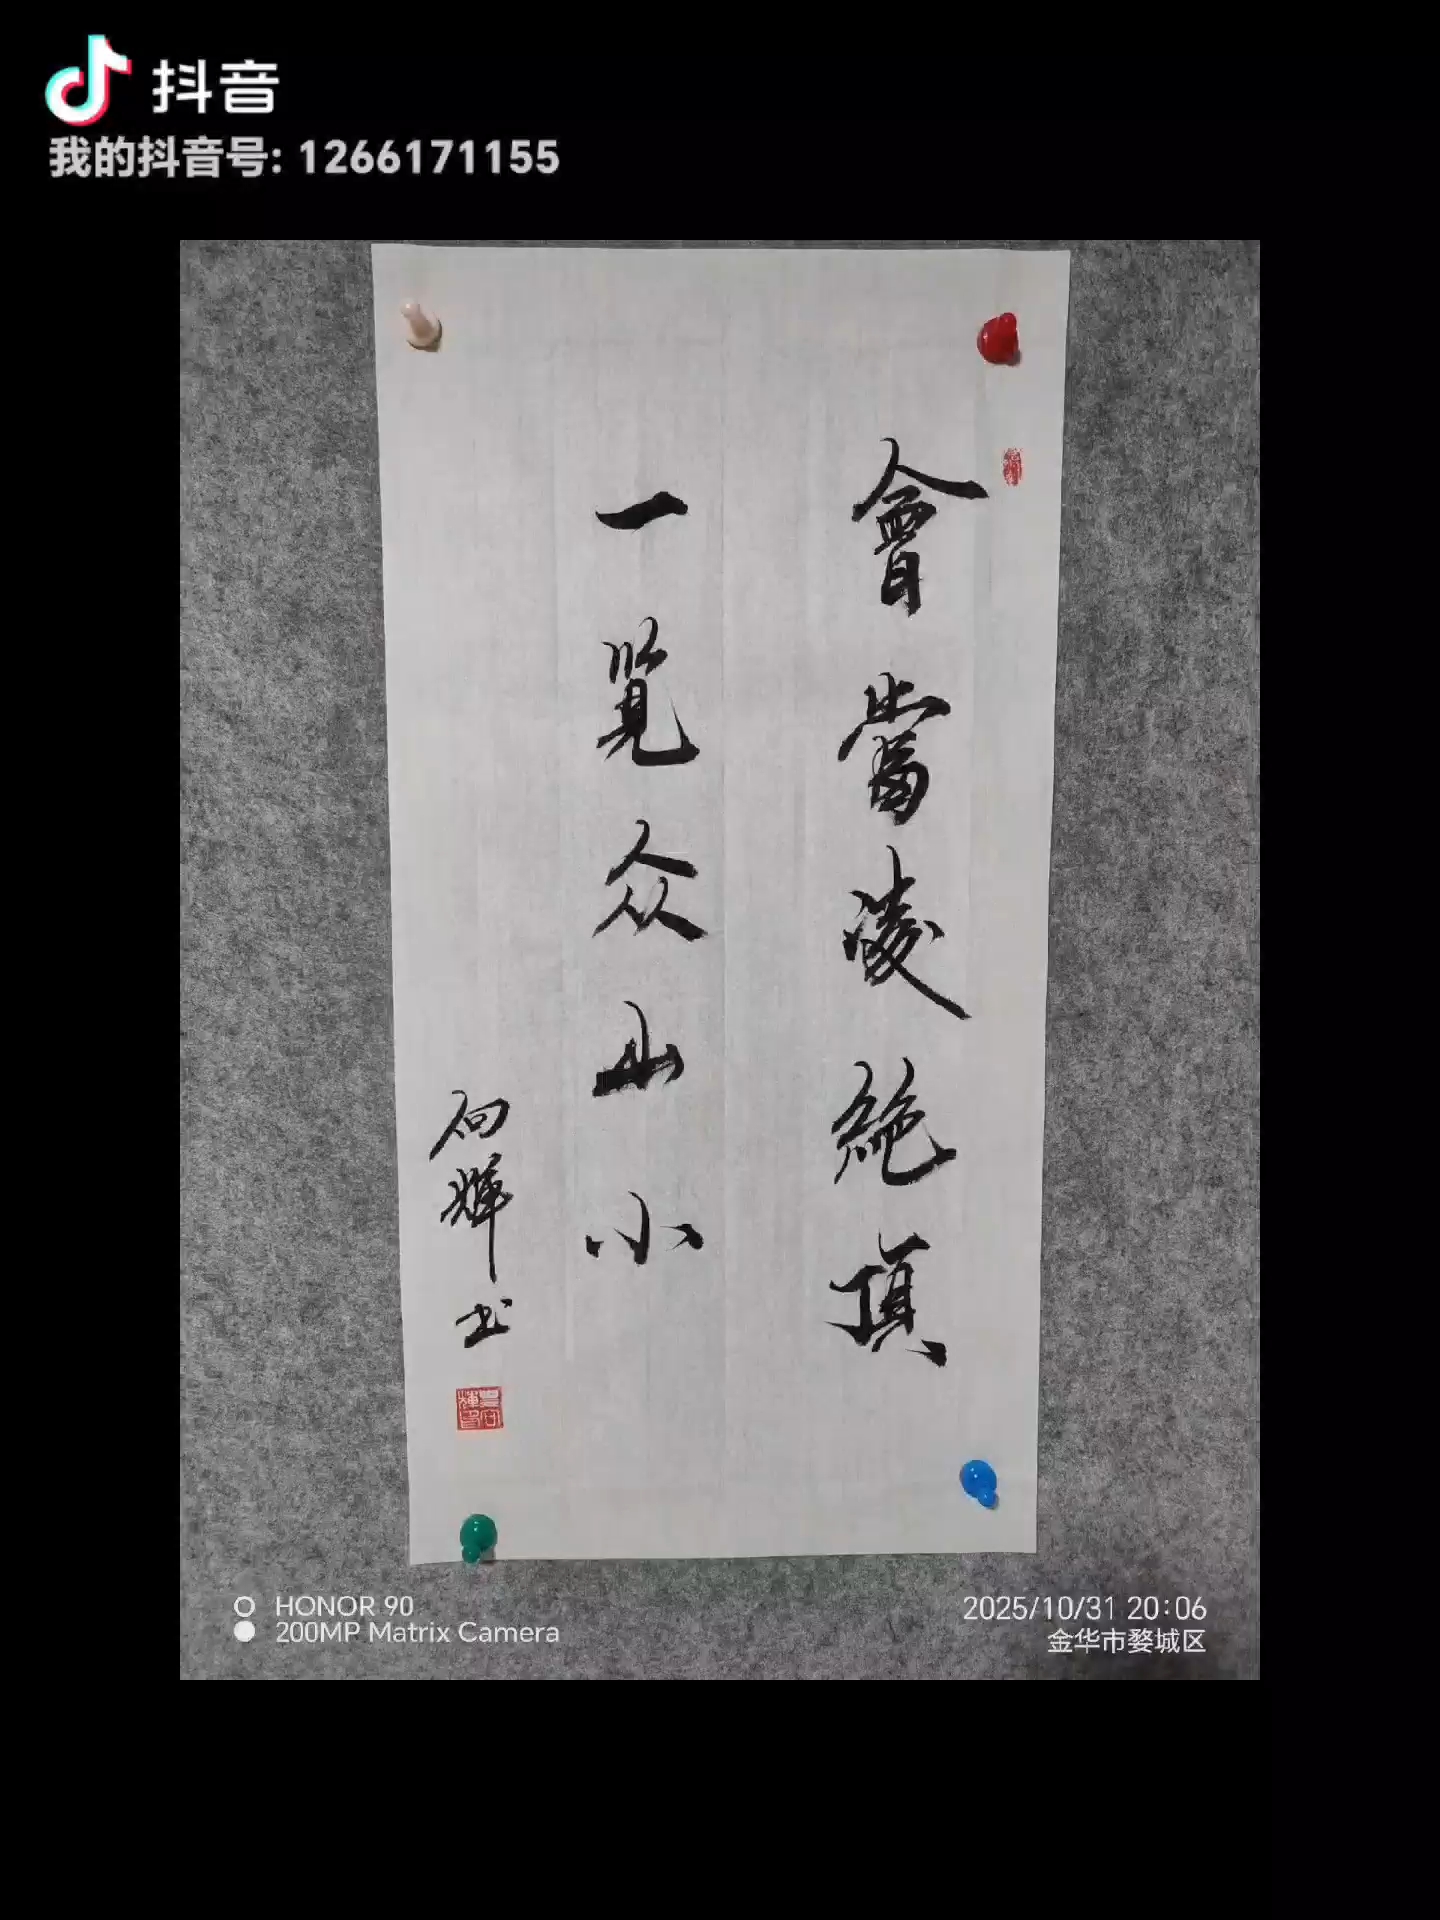 抖音
我的抖音号: 1266171155
會當凌絶頂
一览众山小
向輝书
HONOR 90
200MP Matrix Camera
2025/10/31 20:06
金华市婺城区